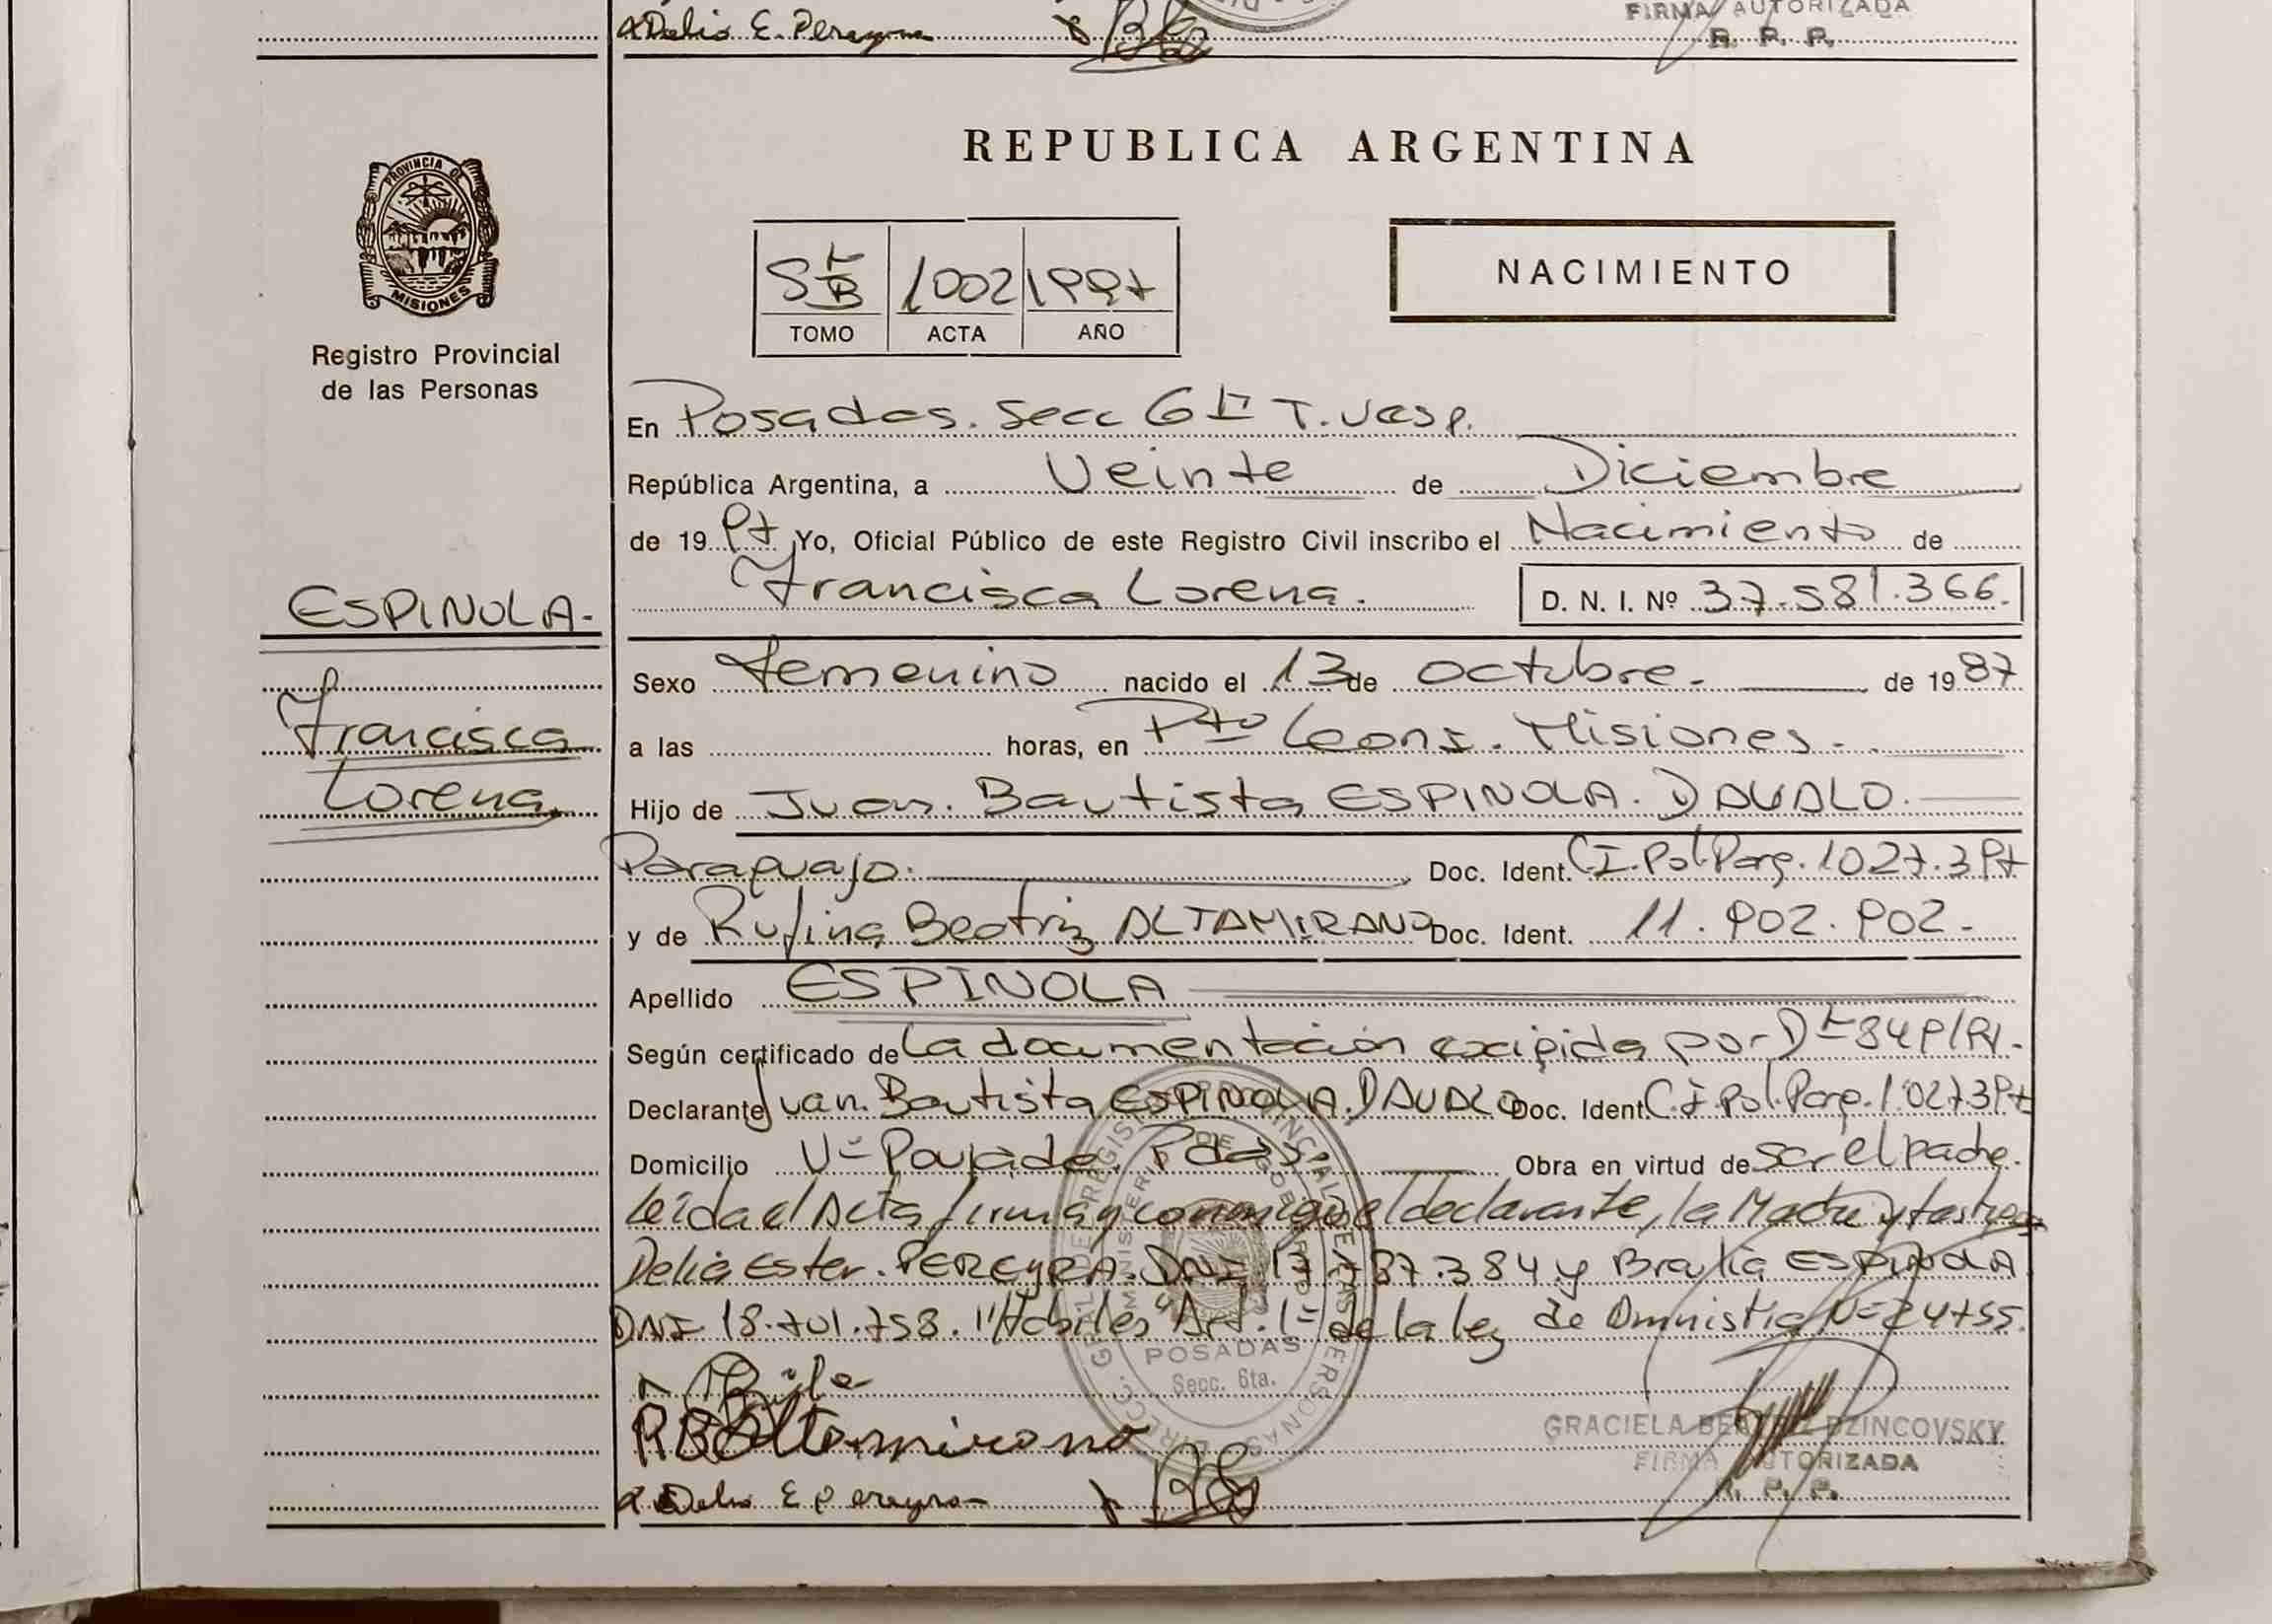 Delia E. Pereyra
FIRMA AUTORIZADA
R. P. P.
REPUBLICA ARGENTINA
PROVINCIA DE
MISIONES
Registro Provincial
de las Personas
1002 1997
TOMO ACTA AÑO
NACIMIENTO
En Posadas. Secc 6ta T. Vesp.
República Argentina, a Veinte de Diciembre
de 1997 Yo, Oficial Público de este Registro Civil inscribo el Nacimiento de
Francisca Lorena. D. N. I. Nº 37.581.366.
ESPINOLA.-
Francisca
Lorena
Sexo femenino nacido el 13 de octubre.- de 1987
a las horas, en Pto Leoni. Misiones.-
Hijo de Juan. Bautista ESPINOLA. DAVALO.
Paraguayo. Doc. Ident. C.I. Pol. Parg. 1027.397
y de Rufina Beatriz ALTAMIRANO Doc. Ident. 11.902.902.-
Apellido ESPINOLA
Según certificado de La documentación exigida por D 849/91.-
Declarante Juan. Bautista ESPINOLA. DAVALO Doc. Ident. C.I. Pol. Parg. 1.027.397
Domicilio Vº Poujade. Pdas. Obra en virtud de ser el padre.
Leída el Acta firman conmigo el declarante, la Madre y testigos
Delia Ester. PEREYRA. DNI 17.787.384 y Braulia ESPINOLA
DNI 18.701.758. "Hábiles" Art. 1º de la ley de Amnistia Nº 24755.
POSADAS
Secc. 6ta.
RBAltamirano
GRACIELA BEATRIZ DZINCOVSKY
FIRMA AUTORIZADA
R. P. P.
Delia E Pereyra